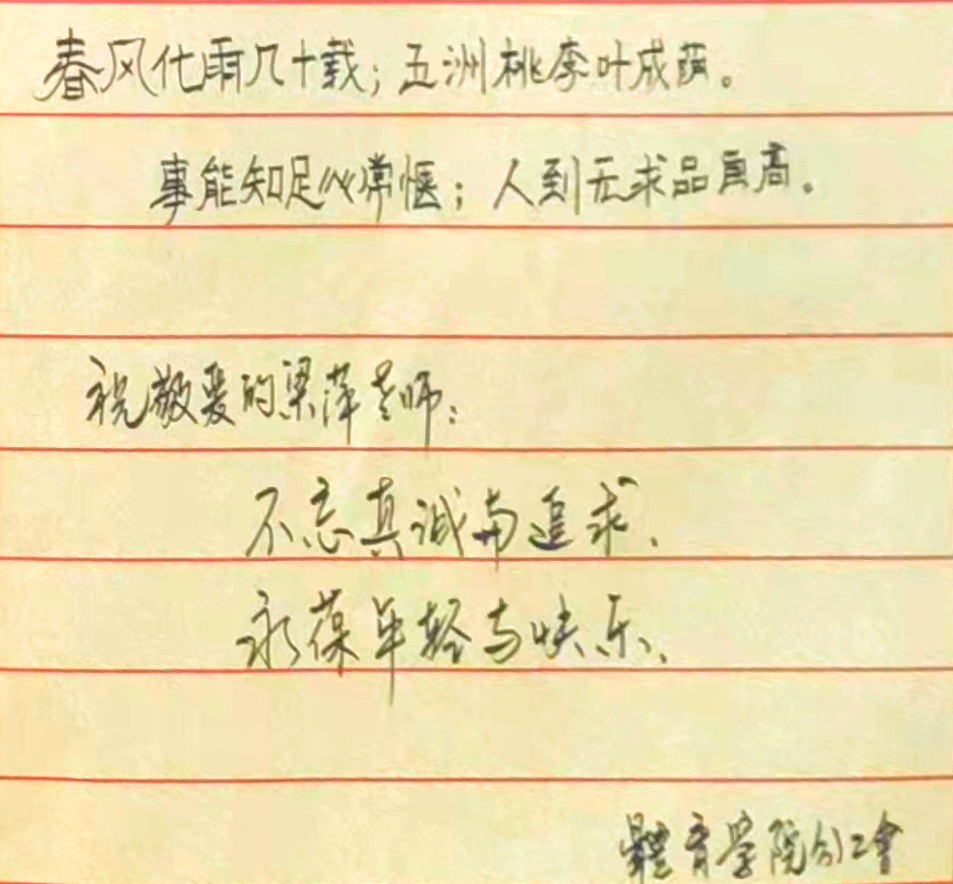 春风化雨几十载；五洲桃李叶成荫。
事能知足心常惬；人到无求品自高。
祝敬爱的梁萍老师：
不忘真诚与追求、
永葆年轻与快乐、
體育学院分工會